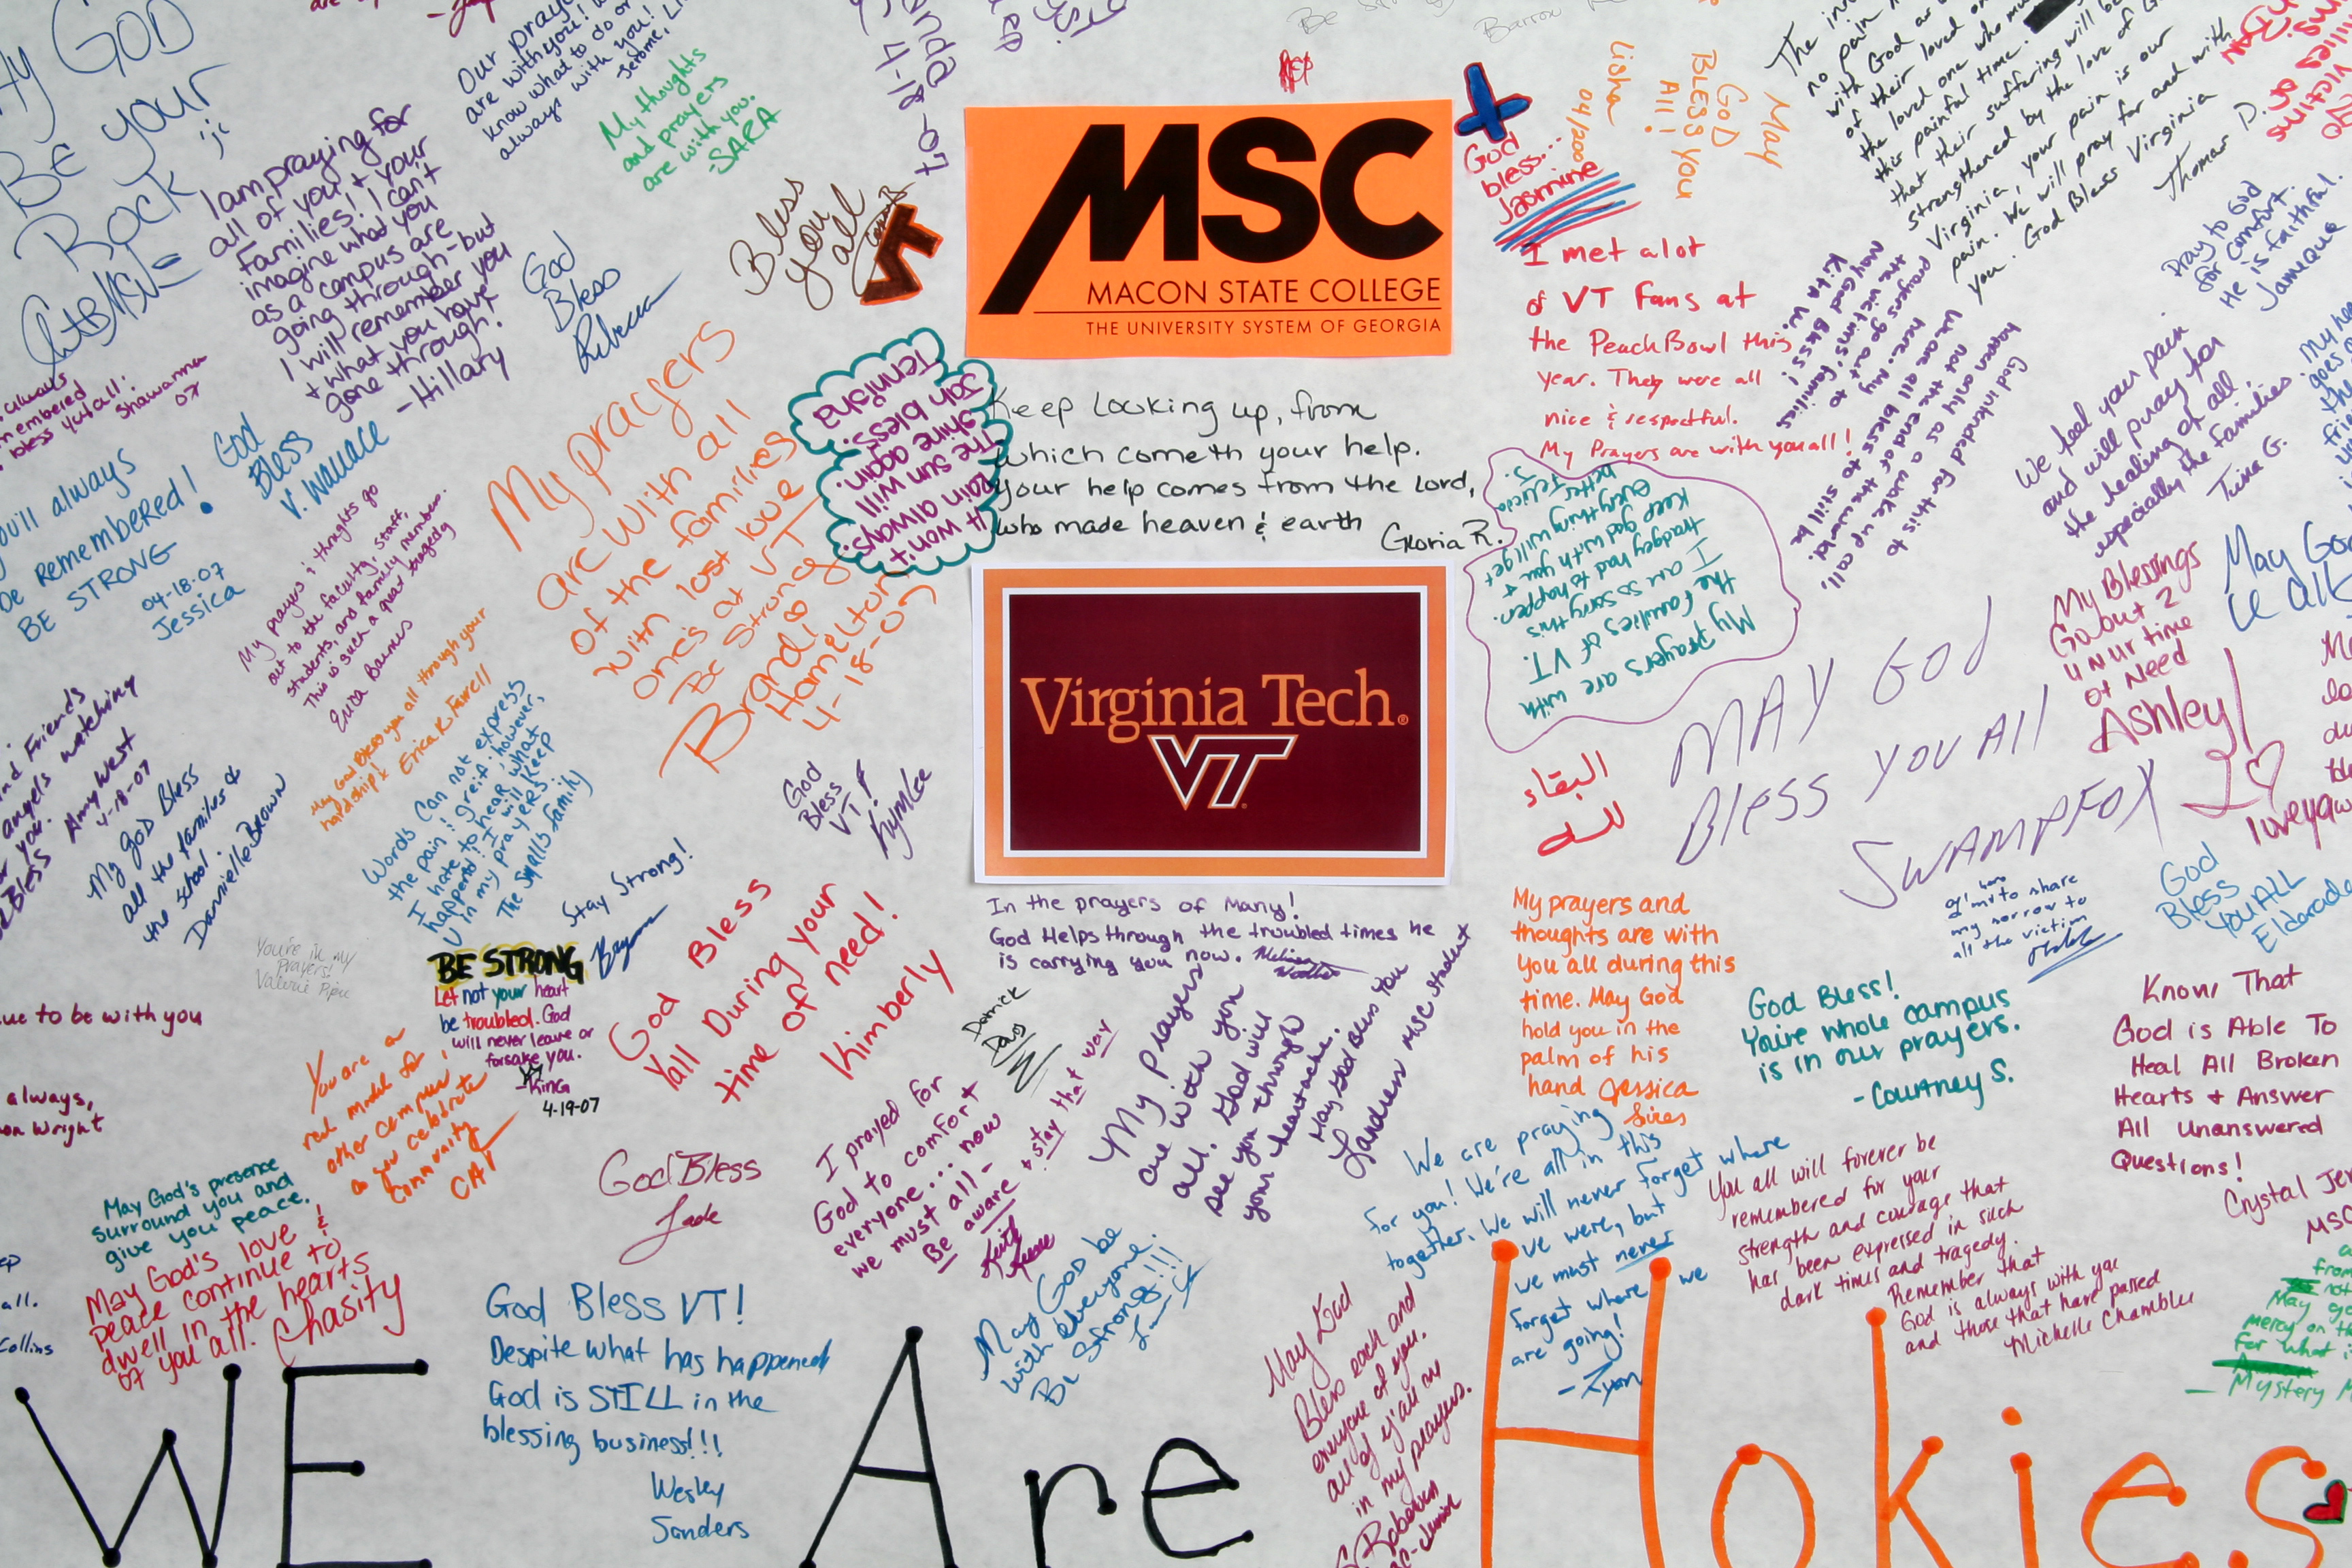 My GOD
BE your
Rock
Our prayers
are with you!
know what to do or
always with you!
Jerome,
My thoughts
and prayers
are with you.
-SARA
I am praying for
all of you & your
families! I can't
imagine what you
as a campus are
going through-but
I will remember you
& what you have
gone through!
-Hillary
God
Bless
Rebecca
Bless
you
all
4-18-07
MSC
MACON STATE COLLEGE
THE UNIVERSITY SYSTEM OF GEORGIA
God
bless...
Jasmine
Lisha
04/2007
May
GOD
BLESS you
All!
I met alot
of VT Fans at
the Peach Bowl this
year. They were all
nice & respectful.
My Prayers are with you all!
with God
of their loved
the loved one who
this painful time.
that their suffering will be
strengthened by the love of
Virginia, your pain is our
pain. We will pray for and with
you. God Bless Virginia
Thomas D.
Pray to God
for comfort.
He is faithful.
Jameque
prayers go out to
the victims' families
May God Bless!
Kita W.
God intended for this to
happen only as a wake up call;
not the end of the world.
We are all bless to still be
here. My
We feel your pain
and will pray for
the healing of all,
especially the families.
Tina G.
always
remembered
bless yall all!
Shawanna
07
You'll always
be remembered!
BE STRONG
04-18-07
Jessica
God
Bless
V. Wallace
My prayers & thoughts go
out to the faculty, staff,
students, and family members.
This is such a great tragedy
Erica Barnes
My prayers
are with all
of the families
with lost love
one's at VT
Be Strong
Brandi
Hamelton
4-18-07
It won't
rain always.
The sun will
shine again.
Jah bless.
Tennigha
Keep looking up, from
which cometh your help.
Your help comes from the Lord,
who made heaven & earth
Gloria R.
Virginia Tech®
VT
My prayers are with
the families of VT.
I am so sorry this
tradgey had to happen.
Keep god with you &
everything will get
better Felicia
S.
البقاء
لله
MAY GOD
Bless you All
SWAMPFOX
My Blessings
Go out 2
U N Ur time
of Need
Ashley
May God
and Friends
angels watching
over you.
God Bless
Amy West
4-18-07
My God Bless
all the families &
the school.
Dannielle Brown
May God Bless you all through your
hardship! Erica R. Farrell
Words Can not express
the pain & greif; however,
I hate to hear what
happend! I will keep
U in my prayers
The Smalls family
God
Bless
VT!
KymLee
Stay Strong!
You're in my
Prayers!
BE STRONG
Let not your heart
be troubled. God
will never leave or
forsake you.
-KinG
4-19-07
God Bless
Yall During your
time of need!
Kimberly
In the prayers of Many!
God Helps through the troubled times he
is carrying you now. Melissa
Derrick
Davis
My prayers and
thoughts are with
you all during this
time. May God
hold you in the
palm of his
hand Jessica
Sires
my sorrow to
all the victim
God
Bless
You ALL
God Bless!
You're whole campus
is in our prayers.
-Courtney S.
Know That
God is Able To
Heal All Broken
Hearts & Answer
All Unanswered
Questions!
to be with you
always,
Wright
You are a
other campus,
as you celebrate
community
CAT
May God's presence
surround you and
give you peace.
May God's love &
peace continue to
dwell in the hearts
of you all. Chasity
God Bless
Jade
I prayed for
God to comfort
everyone... now
we must all-
Be aware & stay that way
Keith
Reese
My Prayers
are with you
all. God will
see you through
your heartache.
May God Bless You
Landrew MSC student
We are praying
for you! We're all in this
together. We will never forget where
we were, but
we must never
forget where we
are going!
-Ryan
You all will forever be
remembered for your
strength and courage that
has been expressed in such
dark times and tragedy.
Remember that
God is always with you
and those that have passed
Michelle Chamblee
Crystal
MSC
Collins
God Bless VT!
Despite what has happened
God is STILL in the
blessing business!!!
Wesley
Sanders
May God be
with everyone.
Be Strong!!!
May God
Bless each and
everyone of you.
all of y'all are
in my prayers.
May
Mercy on
For what
-Mystery
WE Are Hokies